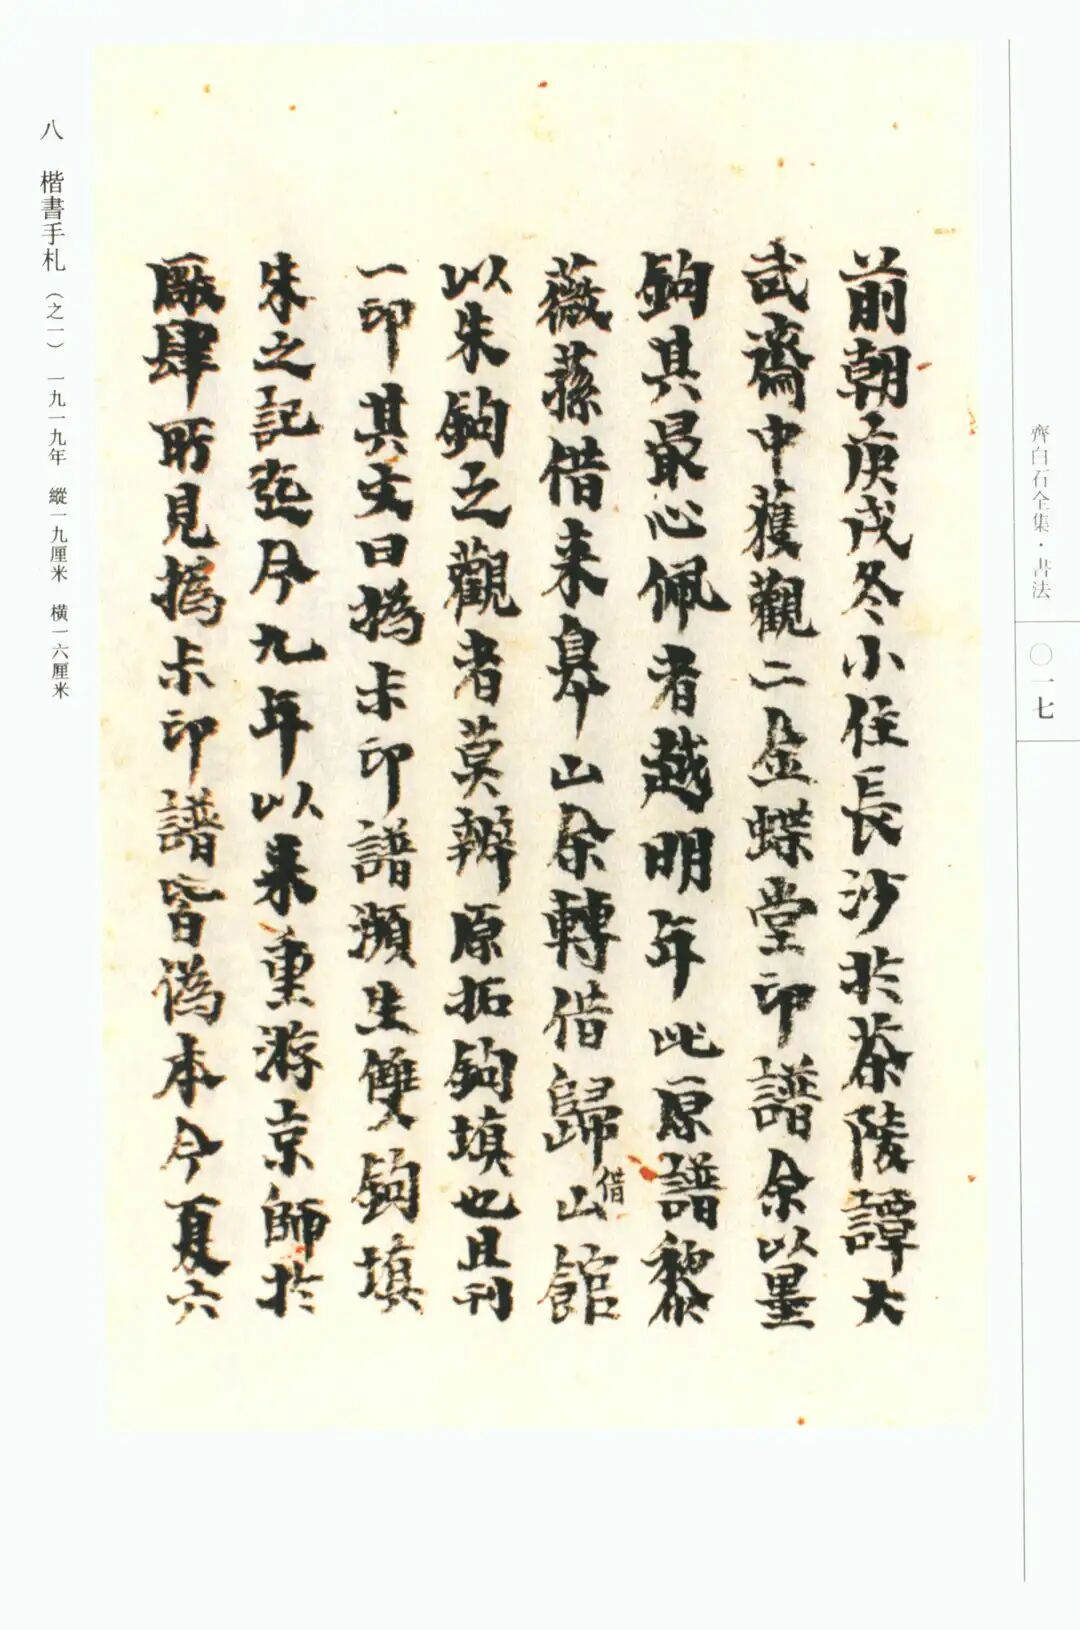 齊白石全集·書法
〇一七
前朝庚戌冬小住長沙於茶陵譚大
武齋中獲觀二金蝶堂印譜余以墨
鉤其最心佩者越明年此原譜黎
薇蓀借來皋山余轉借歸借山館
以朱鉤之觀者莫辨原拓鉤填也且刊
一印其文曰撝尗印譜瀕生雙鉤填
朱之記迄今九年以來重游京師於
厰肆所見撝尗印譜皆偽本今夏六
八 楷書手札（之一） 一九一九年 縱一九厘米 橫一六厘米